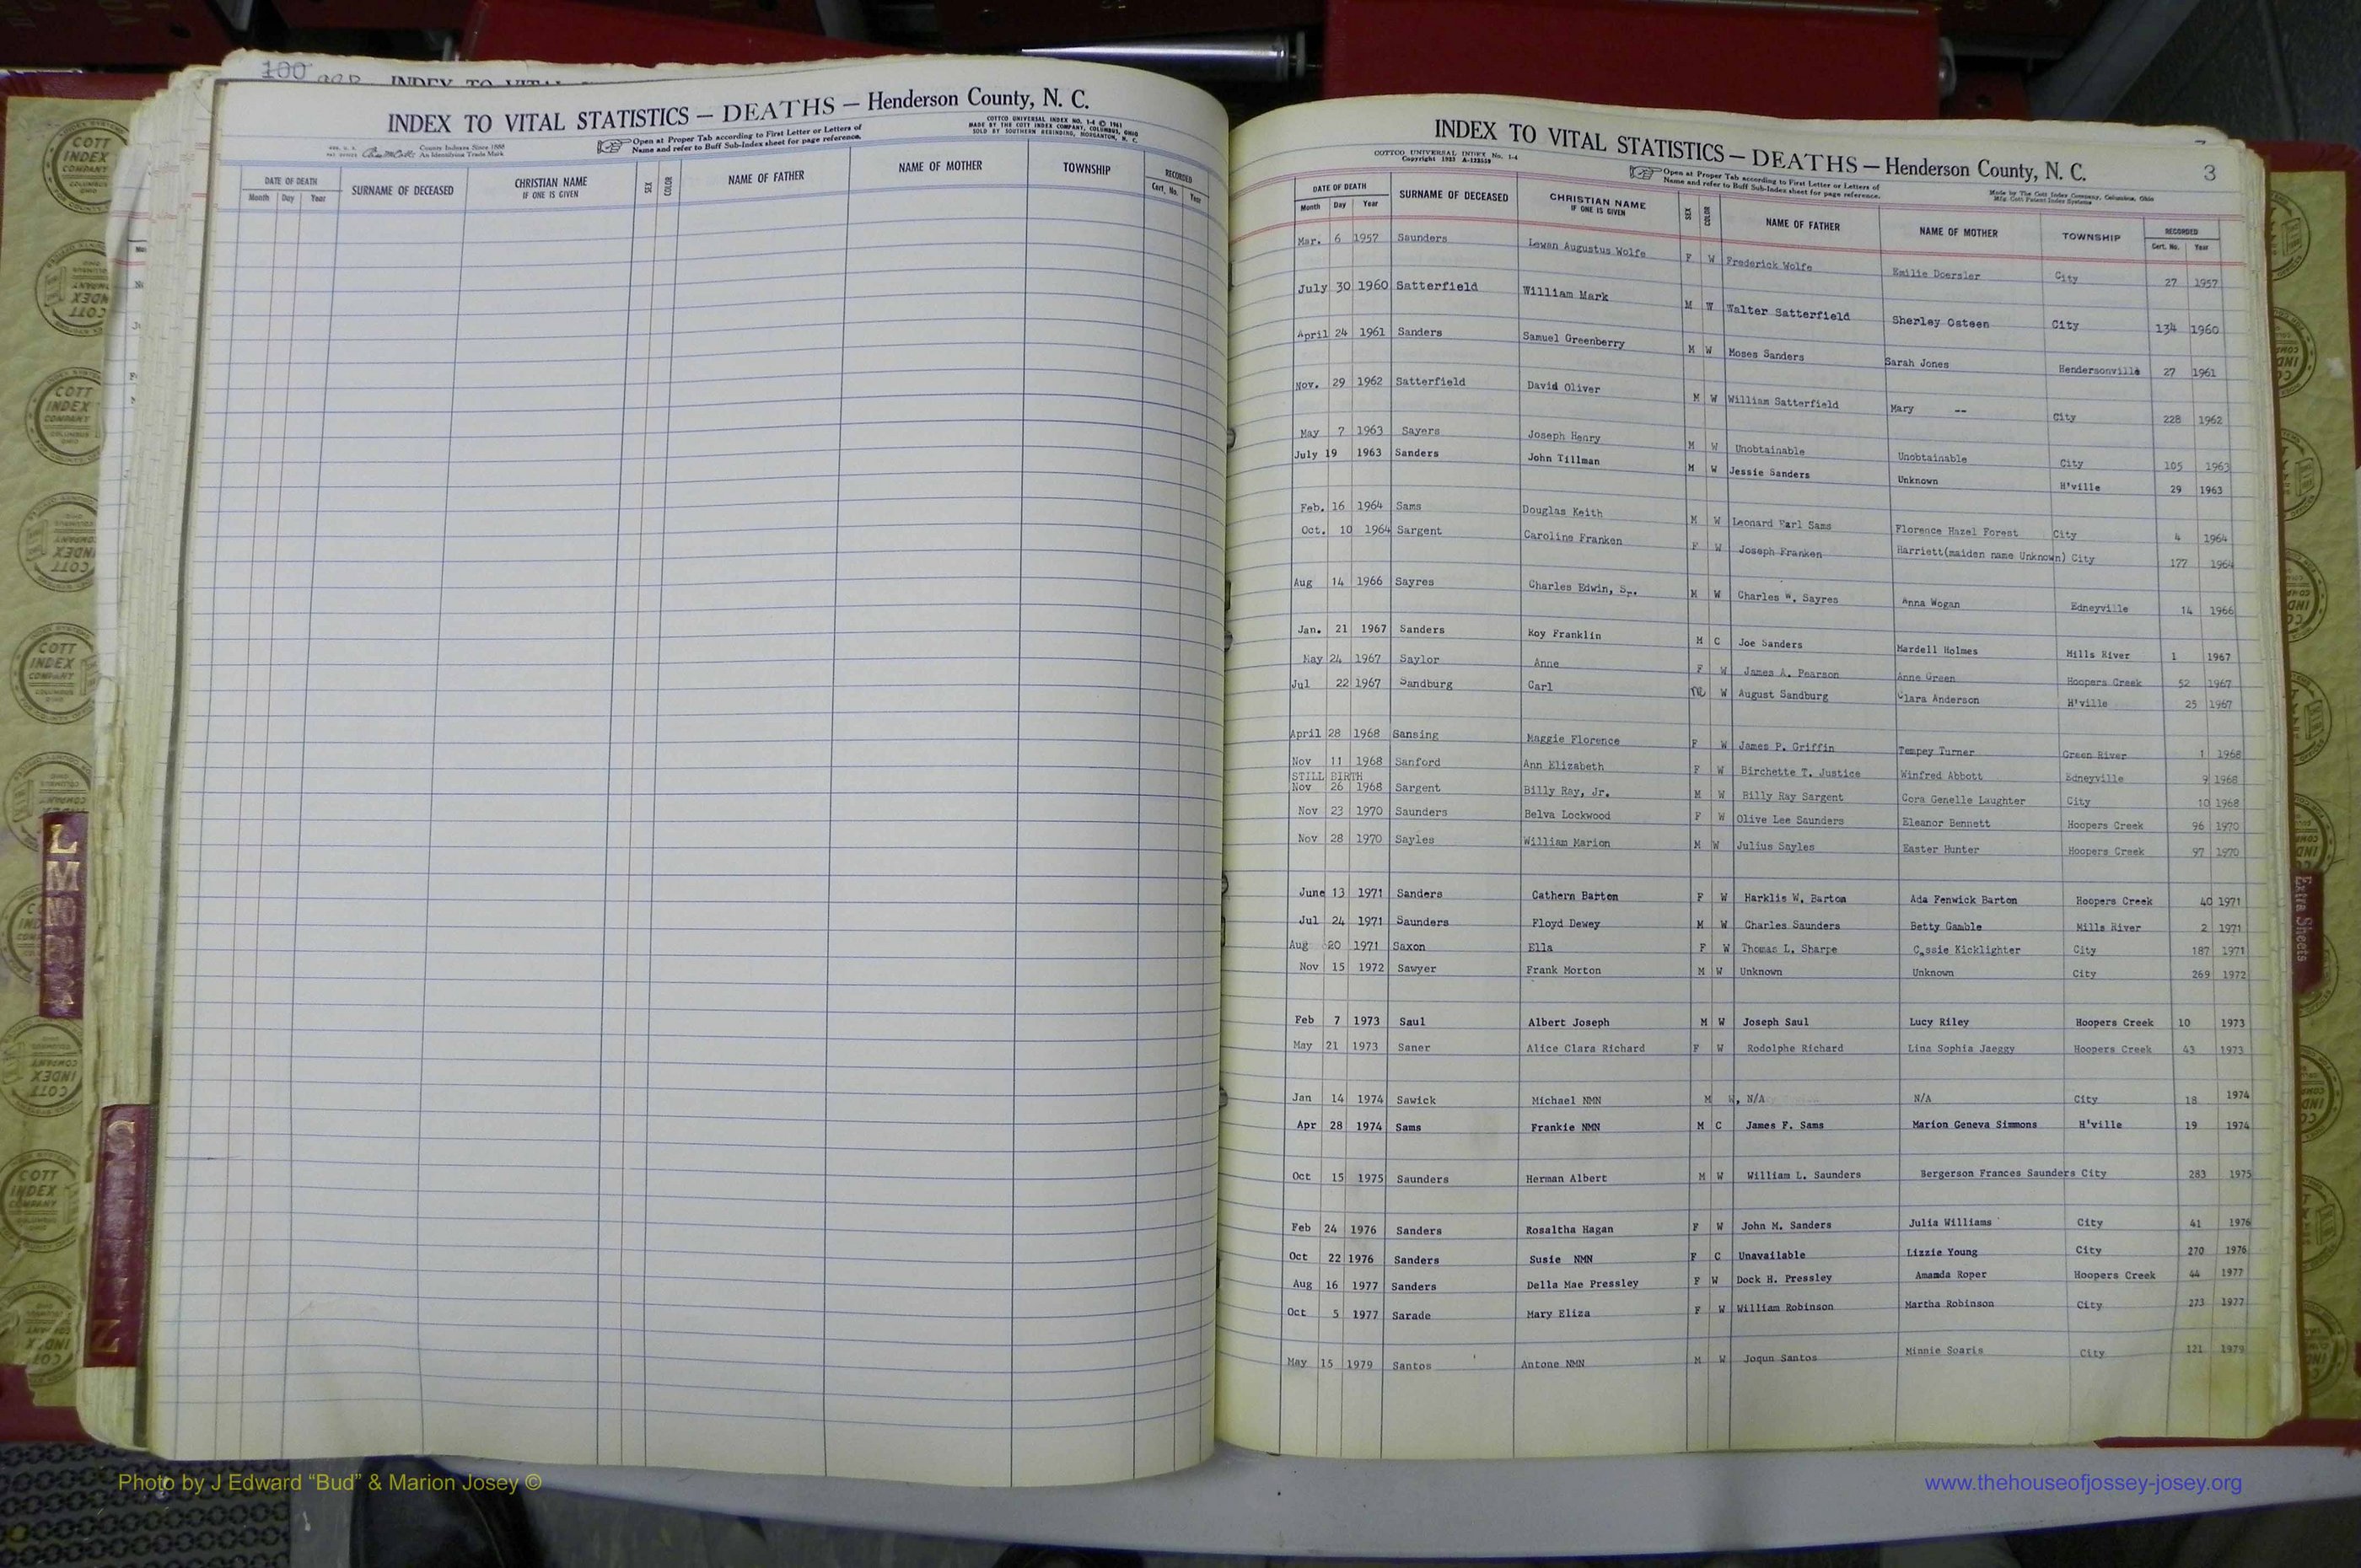 100
INDEX TO VITAL STATISTICS — DEATHS — Henderson County, N. C.
COTTCO UNIVERSAL INDEX NO. 1-4 © 1961
MADE BY THE COTT INDEX COMPANY, COLUMBUS, OHIO
SOLD BY SOUTHERN REBINDING, MORGANTON, N. C.
County Indexes Since 1888
An Identifying Trade Mark
Open at Proper Tab according to First Letter or Letters of
Name and refer to Buff Sub-Index sheet for page reference.
DATE OF DEATH SURNAME OF DECEASED CHRISTIAN NAME IF ONE IS GIVEN SEX COLOR NAME OF FATHER NAME OF MOTHER TOWNSHIP RECORDED
Month Day Year Cert. No. Year
INDEX TO VITAL STATISTICS — DEATHS — Henderson County, N. C. 3
COTTCO UNIVERSAL INDEX No. 1-4
Copyright 1923
Open at Proper Tab according to First Letter or Letters of
Name and refer to Buff Sub-Index sheet for page reference.
Made by The Cott Index Company, Columbus, Ohio
Mfg. Cott Patent Index Systems
DATE OF DEATH SURNAME OF DECEASED CHRISTIAN NAME IF ONE IS GIVEN SEX COLOR NAME OF FATHER NAME OF MOTHER TOWNSHIP RECORDED
Month Day Year Cert. No. Year
Mar. 6 1957 Saunders Lewan Augustus Wolfe F W Frederick Wolfe Emilie Doersler City 27 1957
July 30 1960 Satterfield William Mark M W Walter Satterfield Sherley Osteen City 134 1960
April 24 1961 Sanders Samuel Greenberry M W Moses Sanders Sarah Jones Hendersonville 27 1961
Nov. 29 1962 Satterfield David Oliver M W William Satterfield Mary -- City 228 1962
May 7 1963 Sayers Joseph Henry M W Unobtainable Unobtainable City 105 1963
July 19 1963 Sanders John Tillman M W Jessie Sanders Unknown H'ville 29 1963
Feb. 16 1964 Sams Douglas Keith M W Leonard Earl Sams Florence Hazel Forest City 4 1964
Oct. 10 1964 Sargent Caroline Franken F W Joseph Franken Harriett(maiden name Unknown) City 177 1964
Aug 14 1966 Sayres Charles Edwin, Sr. M W Charles W. Sayres Anna Wogan Edneyville 14 1966
Jan. 21 1967 Sanders Roy Franklin M C Joe Sanders Mardell Holmes Mills River 1 1967
May 24 1967 Saylor Anne F W James A. Pearson Anne Green Hoopers Creek 52 1967
Jul 22 1967 Sandburg Carl M W August Sandburg Clara Anderson H'ville 25 1967
April 28 1968 Sansing Maggie Florence F W James P. Griffin Tempey Turner Green River 1 1968
Nov 11 1968 Sanford Ann Elizabeth F W Birchette T. Justice Winfred Abbott Edneyville 9 1968
STILL BIRTH
Nov 26 1968 Sargent Billy Ray, Jr. M W Billy Ray Sargent Cora Genelle Laughter City 10 1968
Nov 23 1970 Saunders Belva Lockwood F W Olive Lee Saunders Eleanor Bennett Hoopers Creek 96 1970
Nov 28 1970 Sayles William Marion M W Julius Sayles Easter Hunter Hoopers Creek 97 1970
June 13 1971 Sanders Cathern Barton F W Harklis W. Barton Ada Fenwick Barton Hoopers Creek 40 1971
Jul 24 1971 Saunders Floyd Dewey M W Charles Saunders Betty Gamble Mills River 2 1971
Aug 20 1971 Saxon Ella F W Thomas L. Sharpe Cassie Kicklighter City 187 1971
Nov 15 1972 Sawyer Frank Morton M W Unknown Unknown City 269 1972
Feb 7 1973 Saul Albert Joseph M W Joseph Saul Lucy Riley Hoopers Creek 10 1973
May 21 1973 Saner Alice Clara Richard F W Rodolphe Richard Lina Sophia Jaeggy Hoopers Creek 43 1973
Jan 14 1974 Sawick Michael NMN M W, N/A N/A City 18 1974
Apr 28 1974 Sams Frankie NMN M C James F. Sams Marion Geneva Simmons H'ville 19 1974
Oct 15 1975 Saunders Herman Albert M W William L. Saunders Bergerson Frances Saunders City 283 1975
Feb 24 1976 Sanders Rosaltha Hagan F W John M. Sanders Julia Williams City 41 1976
Oct 22 1976 Sanders Susie NMN F C Unavailable Lizzie Young City 270 1976
Aug 16 1977 Sanders Della Mae Pressley F W Dock H. Pressley Amanda Roper Hoopers Creek 44 1977
Oct 5 1977 Sarade Mary Eliza F W William Robinson Martha Robinson City 273 1977
May 15 1979 Santos Antone NMN M W Joqun Santos Minnie Soaris City 121 1979
Extra Sheets
COTT INDEX COMPANY COLUMBUS OHIO
Photo by J Edward “Bud” & Marion Josey ©
www.thehouseofjossey-josey.org